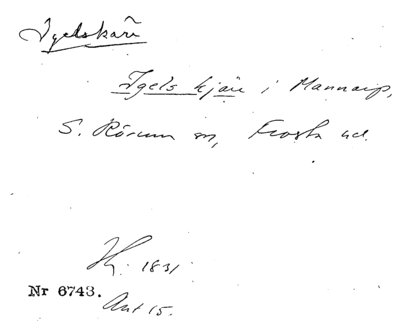 Igelskärr
Igels kjärr i Mannarp,
S. Rörum sn, Frosta hd.
Hy. 1831
Nr 6743.
Ant 15.